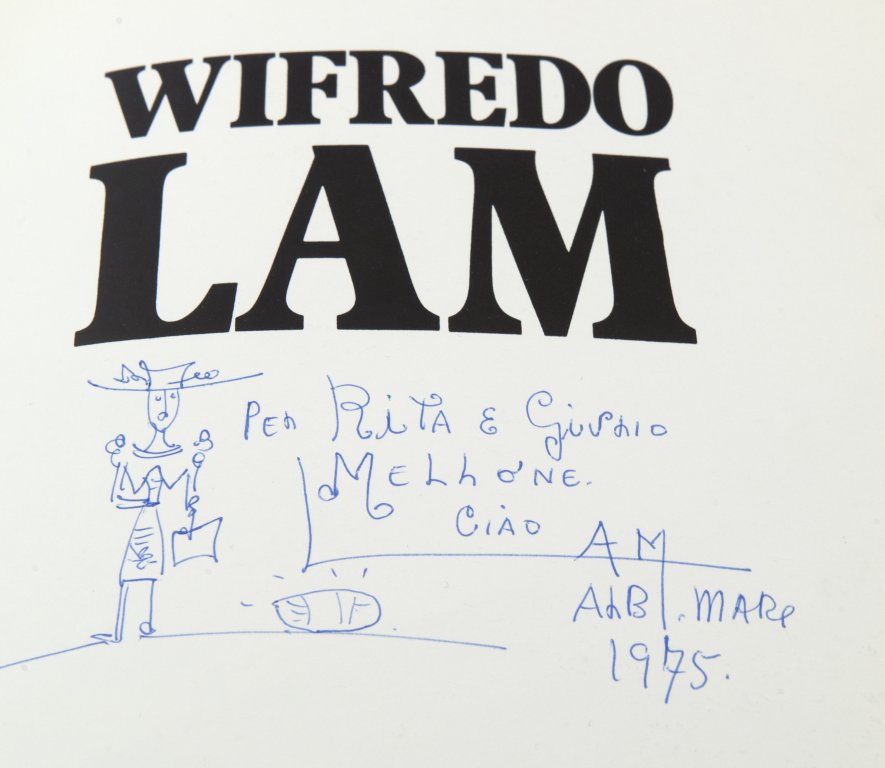 WIFREDO
LAM
PER RITA E
MELLONE.
CIAO
ALBI. MARE
1975.